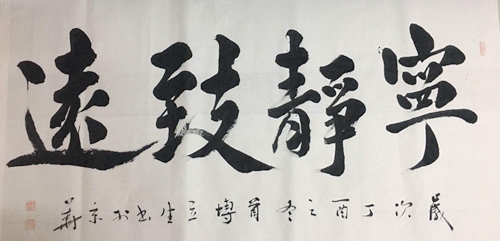 寧靜致遠
歲次丁酉之冬蘭博立生書於京華